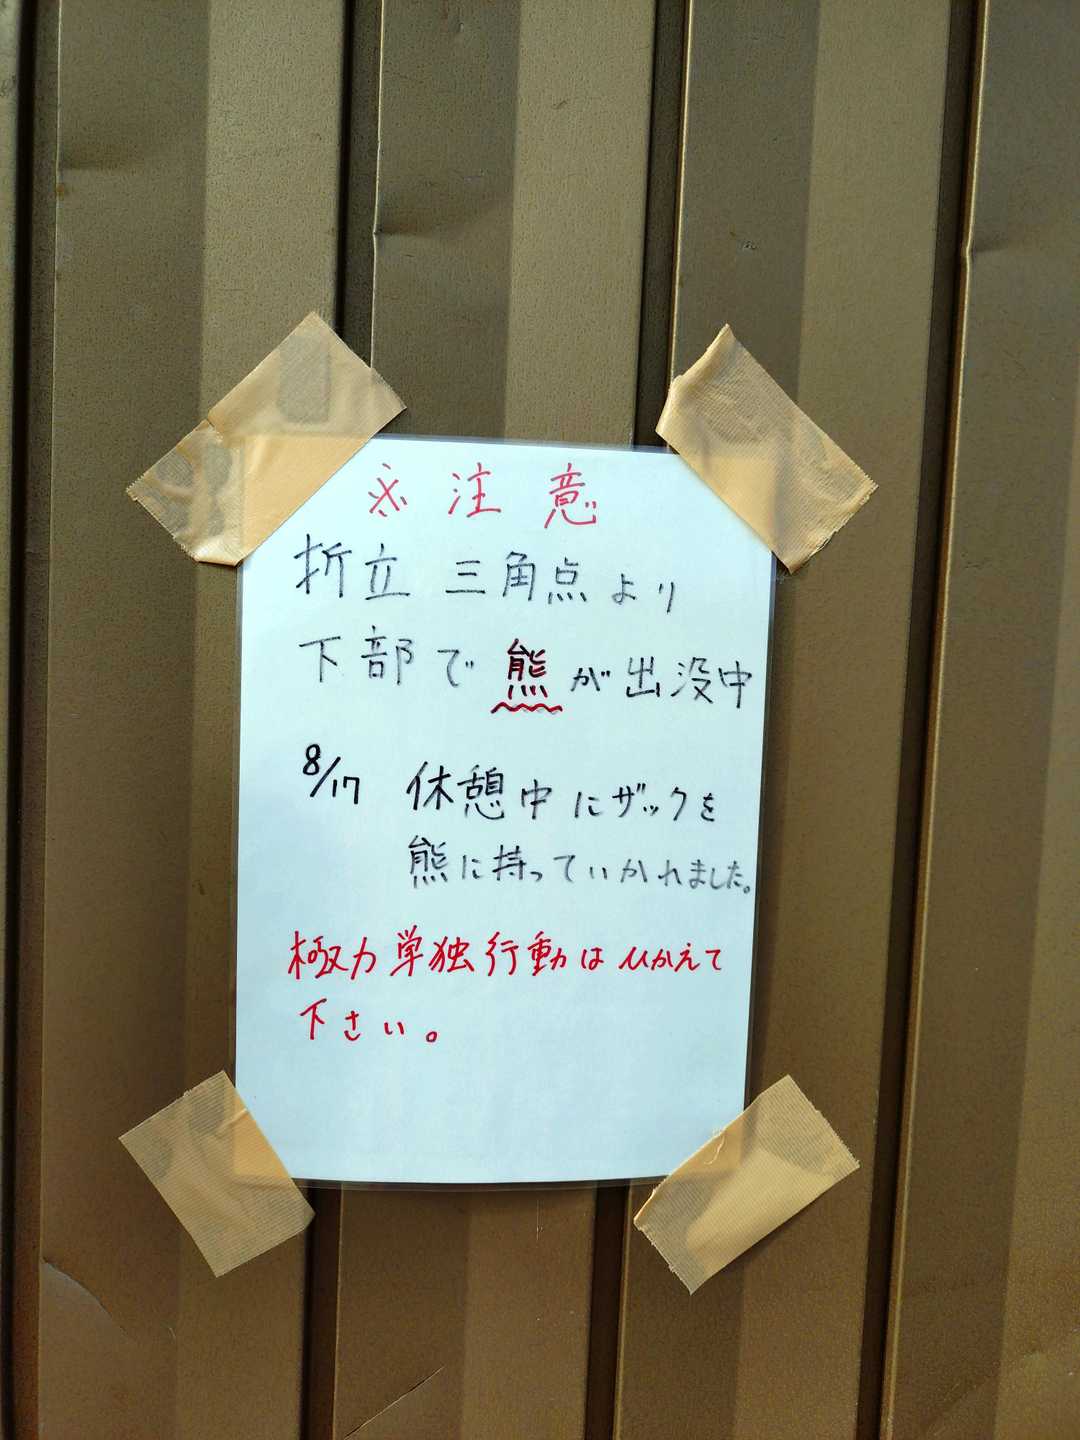 ※注意
折立 三角点より
下部で熊が出没中
8/17 休憩中にザックを
熊に持っていかれました。
極力単独行動はひかえて
下さい。